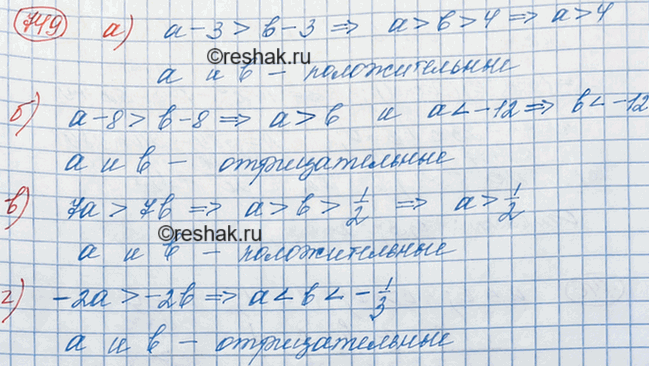 749 а) a-3>b-3 ⇒ a>b>4 ⇒ a>4
©reshak.ru
a и b - положительные
б) a-8>b-8 ⇒ a>b и a<-12 ⇒ b<-12
a и b - отрицательные
в) 7a>7b ⇒ a>b>1/2 ⇒ a>1/2
©reshak.ru
a и b - положительные
г) -2a>-2b ⇒ a<b<-1/3
a и b - отрицательные